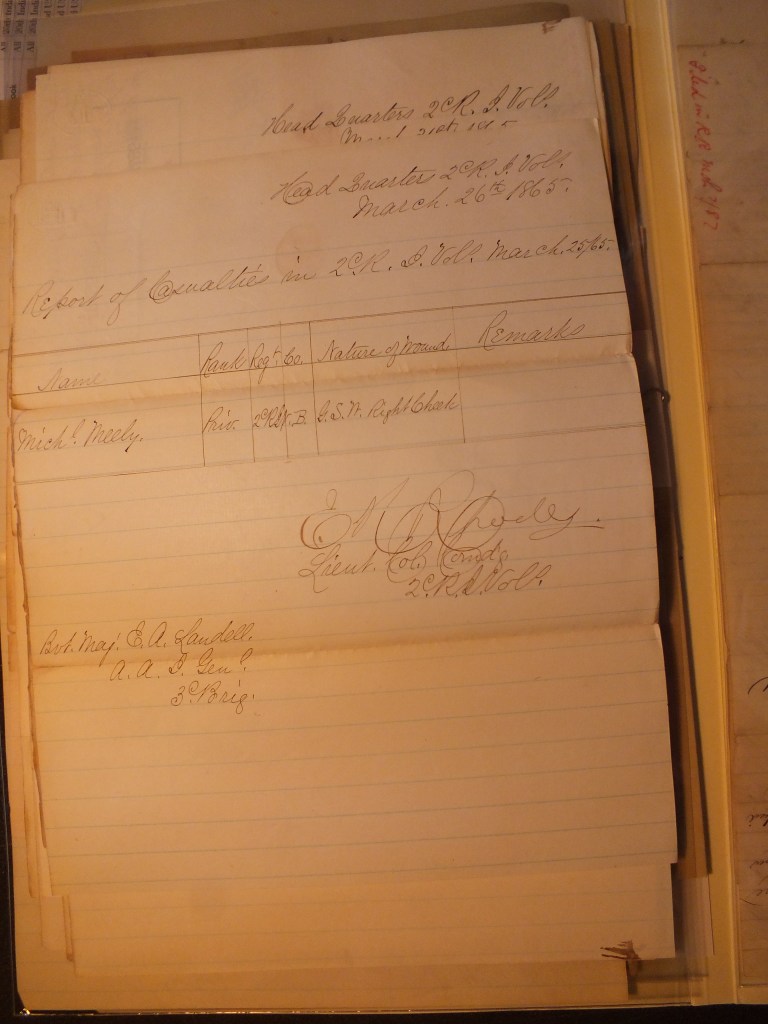 Head Quarters 2d R. I. Vols.
Head Quarters 2d R. I. Vols.
March. 26th 1865.
Report of Casualties in 2d. R. I. Vols. March. 25/65.
Name Rank Regt. Co. Nature of Wound. Remarks
Michl. Meely. Priv. 2d R I V. B. G. S. W. Right Cheek
E H Rhodes.
Lieut. Col. Comdg
2d. R. I. Vols.
Bvt. Maj. E. A. Landell.
A. A. I. Genl.
3d. Brig.